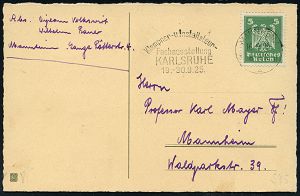 Abs.
Wilhelm Bauer
Mannheim, Lange Rötterstr. 4
Klempner- u. Installateur-
Fachausstellung
KARLSRUHE
19.-30.9.25.
5 5
Deutsches
Reich
Herrn
Professor Karl Mayer
Mannheim
Waldparkstr. 39.